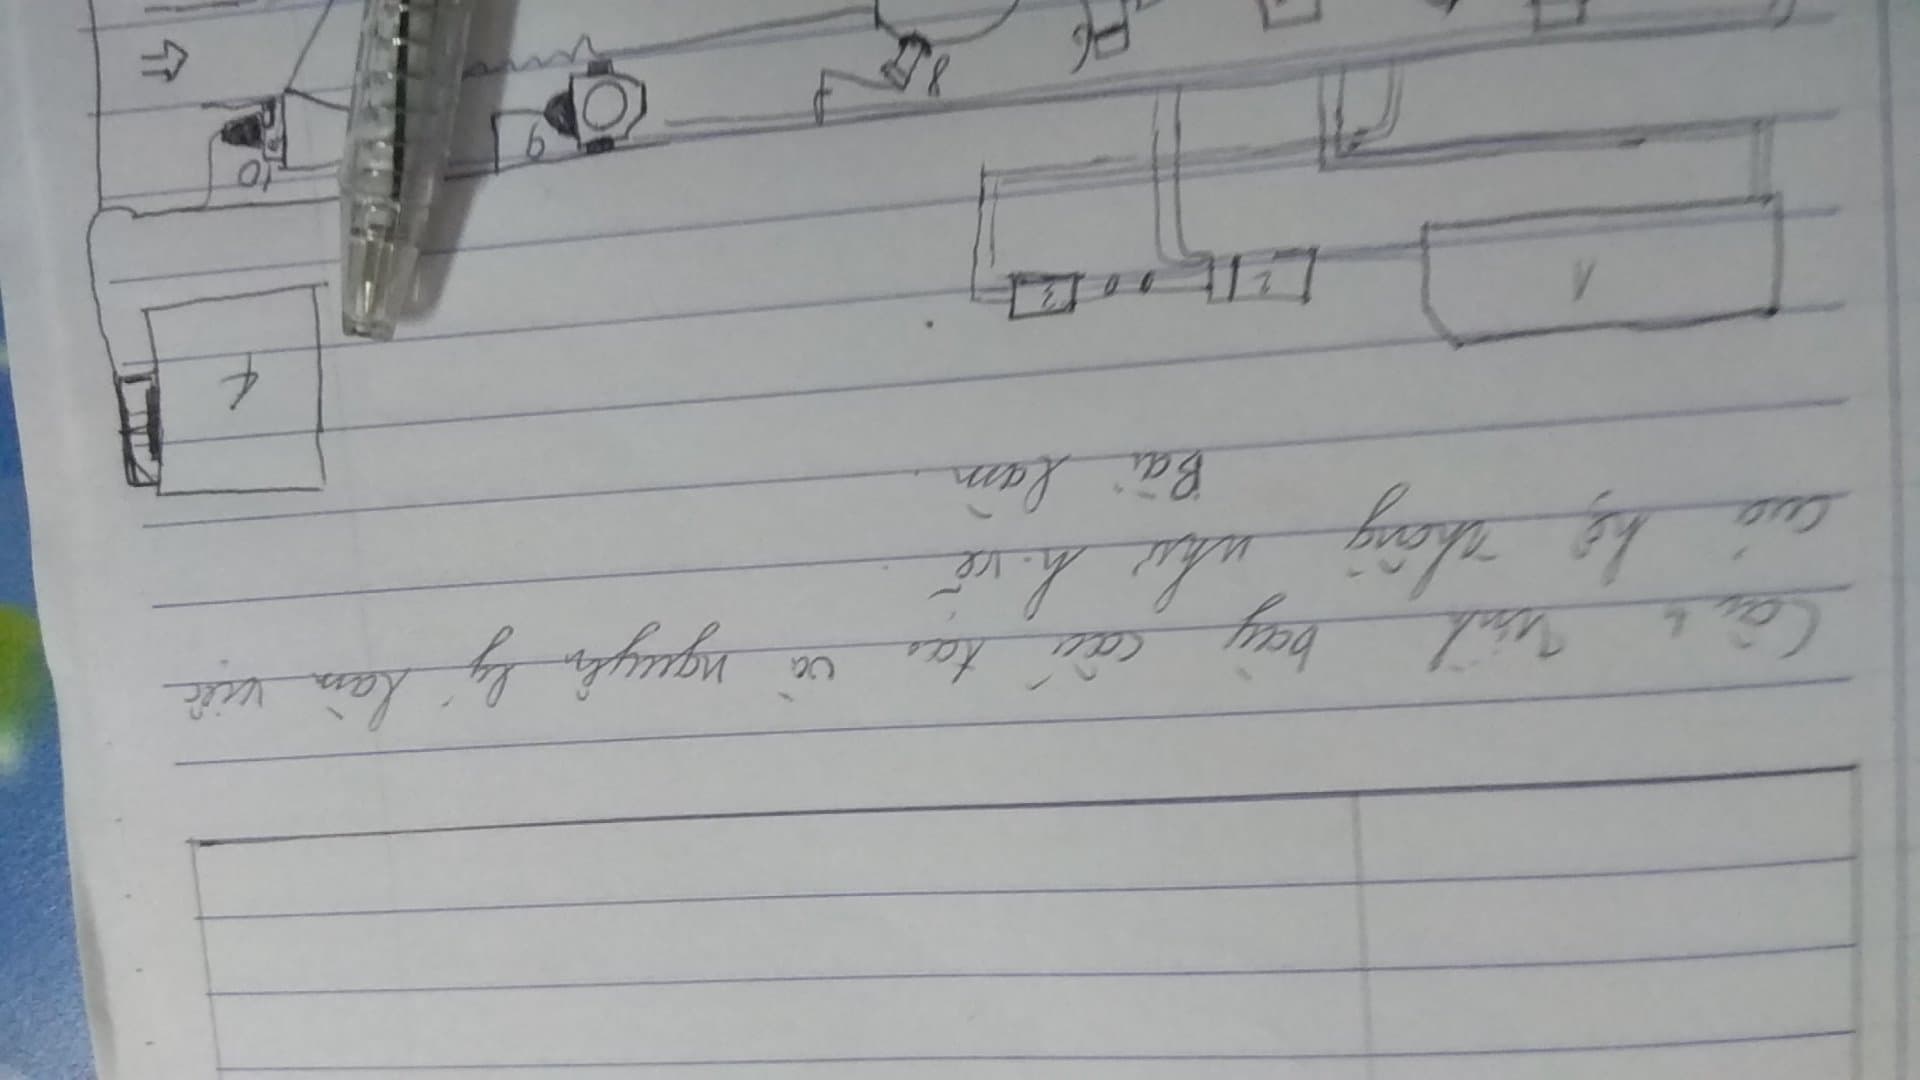 Câu 1: Trình bày cấu tạo và nguyên lý làm việc
của hệ thống như h.vẽ
Bài làm
4
1
2
3
10
9
8
6